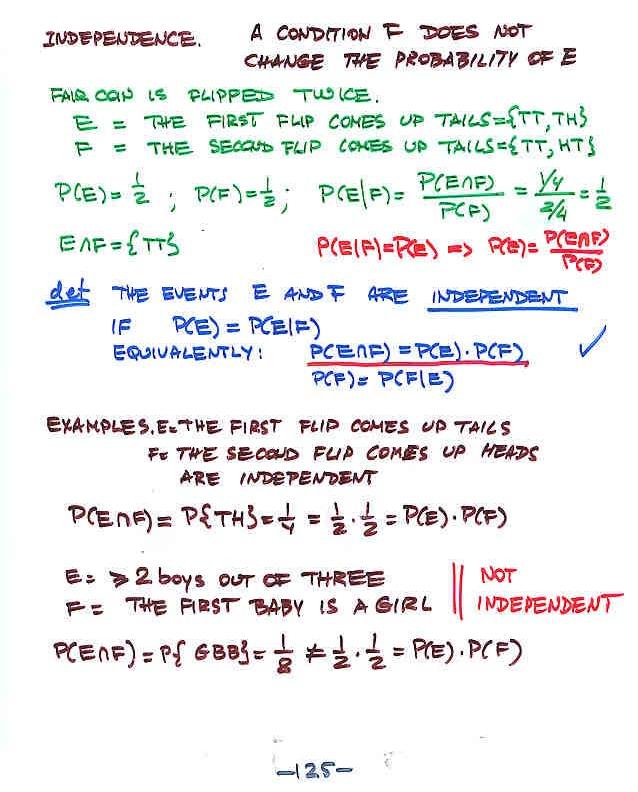 INDEPENDENCE. A CONDITION F DOES NOT
CHANGE THE PROBABILITY OF E
FAIR COIN IS FLIPPED TWICE.
E = THE FIRST FLIP COMES UP TAILS={TT,TH}
F = THE SECOND FLIP COMES UP TAILS={TT,HT}
P(E)=1/2 ; P(F)=1/2; P(E|F)= P(E∩F)/P(F) = 1/4 / 2/4 = 1/2
E∩F={TT} P(E|F)=P(E) => P(E)= P(E∩F)/P(F)
def THE EVENTS E AND F ARE INDEPENDENT
IF P(E) = P(E|F)
EQUIVALENTLY: P(E∩F) = P(E).P(F) ✓
P(F)= P(F|E)
EXAMPLES. E=THE FIRST FLIP COMES UP TAILS
F= THE SECOND FLIP COMES UP HEADS
ARE INDEPENDENT
P(E∩F)= P{TH}=1/4 = 1/2 . 1/2 = P(E).P(F)
E= ≥2 boys OUT OF THREE || NOT
F= THE FIRST BABY IS A GIRL || INDEPENDENT
P(E∩F)=P{GBB}= 1/8 ≠ 1/2 . 1/2 = P(E).P(F)
-125-